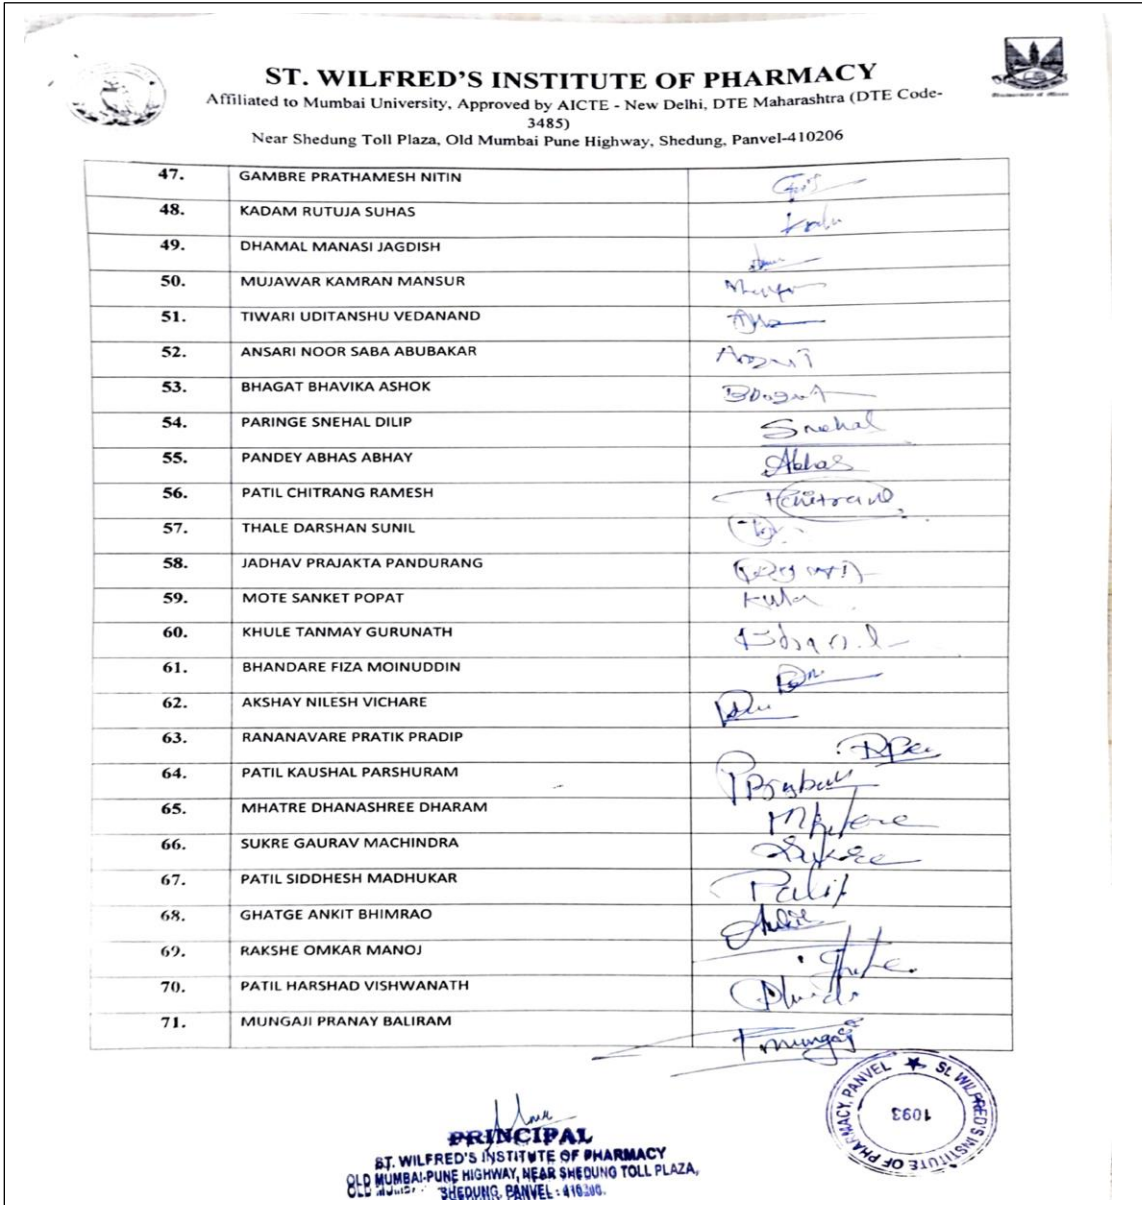 ST. WILFRED'S INSTITUTE OF PHARMACY
Affiliated to Mumbai University, Approved by AICTE - New Delhi, DTE Maharashtra (DTE Code-
3485)
Near Shedung Toll Plaza, Old Mumbai Pune Highway, Shedung, Panvel-410206
47. GAMBRE PRATHAMESH NITIN
48. KADAM RUTUJA SUHAS
49. DHAMAL MANASI JAGDISH
50. MUJAWAR KAMRAN MANSUR
51. TIWARI UDITANSHU VEDANAND
52. ANSARI NOOR SABA ABUBAKAR
53. BHAGAT BHAVIKA ASHOK
54. PARINGE SNEHAL DILIP Snehal
55. PANDEY ABHAS ABHAY Abhas
56. PATIL CHITRANG RAMESH
57. THALE DARSHAN SUNIL
58. JADHAV PRAJAKTA PANDURANG
59. MOTE SANKET POPAT
60. KHULE TANMAY GURUNATH
61. BHANDARE FIZA MOINUDDIN
62. AKSHAY NILESH VICHARE
63. RANANAVARE PRATIK PRADIP
64. PATIL KAUSHAL PARSHURAM
65. MHATRE DHANASHREE DHARAM
66. SUKRE GAURAV MACHINDRA
67. PATIL SIDDHESH MADHUKAR
68. GHATGE ANKIT BHIMRAO
69. RAKSHE OMKAR MANOJ
70. PATIL HARSHAD VISHWANATH
71. MUNGAJI PRANAY BALIRAM
PRINCIPAL
ST. WILFRED'S INSTITUTE OF PHARMACY
OLD MUMBAI-PUNE HIGHWAY, NEAR SHEDUNG TOLL PLAZA,
SHEDUNG, PANVEL : 410206.
ST. WILFRED'S INSTITUTE OF PHARMACY, PANVEL
1093